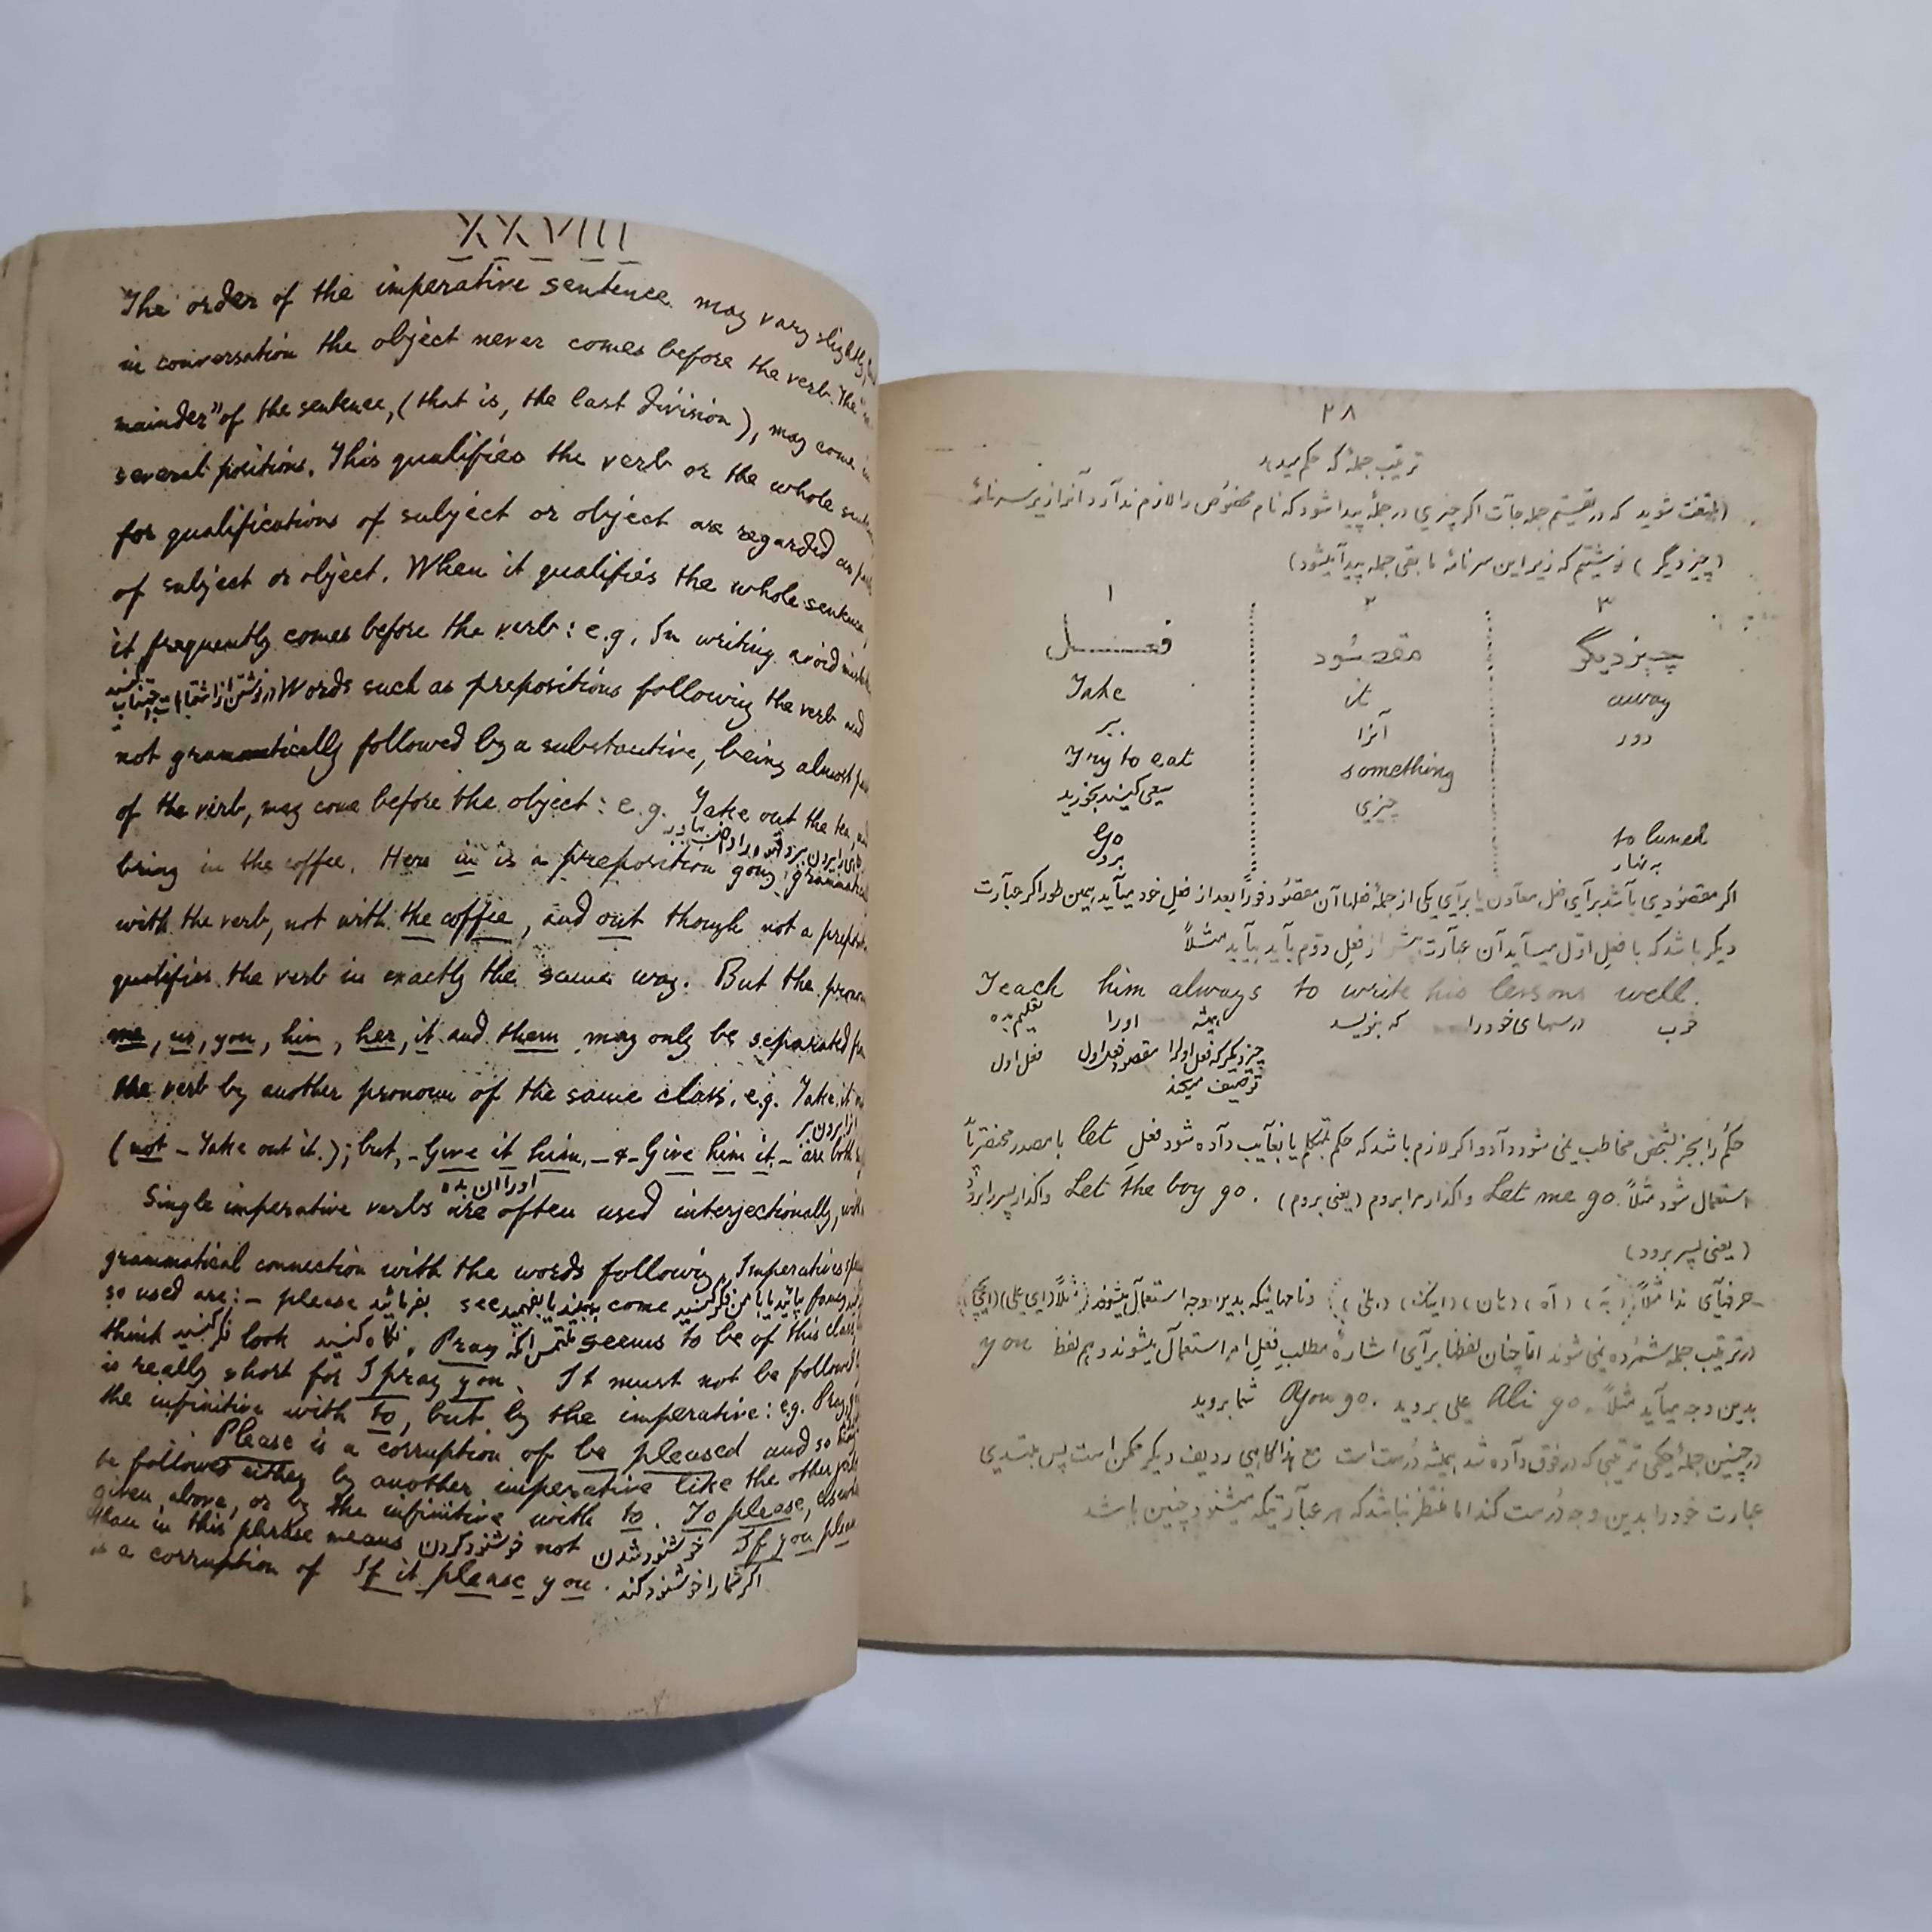 XXVIII
The order of the imperative sentence may vary slightly,
in conversation the object never comes before the verb. The
mainder" of the sentence, (that is, the last division), may come in
several positions. This qualifies the verb or the whole
for qualifications of subject or object are regarded as
of subject or object. When it qualifies the whole sentence,
it frequently comes before the verb: e.g. In writing avoid
Words such as prepositions following the verb and
not grammatically followed by a substantive, being almost
of the verb, may come before the object: e.g. Take out the tea, and
bring in the coffee. Here in is a preposition going
with the verb, not with the coffee, and out though not a
qualifies the verb in exactly the same way. But the
me, us, you, him, her, it and them may only be separated
the verb by another pronoun of the same class. e.g. Take it
(not - Take out it.); but, - Give it him, - & - Give him it, - are both
اورا آن بده
Single imperative verbs are often used interjectionally,
grammatical connection with the words following. Imperatives
so used are: - please بفرمائید see ببینید یا بفهمید come
think فکر کنید look نگاه کنید. Pray seems to be of this class
is really short for I pray you. It must not be followed
the infinitive with to, but by the imperative: e.g. Pray,
Please is a corruption of be pleased and so
be followed either by another imperative like the other
given above, or by the infinitive with to. To please,
than in this phrase means خوشنود کردن not خوشنود شدن If you
is a corruption of If it please you. اگر شما را خوشنود کند
۲۸
ترتیب جملهٔ که حکم میدهد
(ملتفت شوید که در تقسیم جمله جات اگر چیزی در جملهٔ پیدا شود که نام مخصوص را لازم ندارد آنرا زیر سرنامهٔ
(چیز دیگر) نوشتیم که زیر این سرنامه مابقی جمله پیدا میشود)
۱ ۲ ۳
فعل مقصود چیز دیگر
Take it away
ببر آنرا دور
Try to eat something
سعی کنید بخورید چیزی
Go to lunch
برو به نهار
اگر مقصودی باشد برای فعل معاون یا برای یکی از جملهٔ فعلها آن مقصود فوراً بعد از فعل خود میآید همین طور اگر عبارت
دیگر باشد که با فعل اوّل میآید آن عبارت پیش از فعل دوّم باید بیاید مثلاً
Teach him always to write his lessons well.
تعلیم بده اورا همیشه که بنویسد درسهای خود را خوب
فعل اول مقصود فعل اول چیز دیگر که فعل اول را
توصیف میکند
حکم را بجز بشخص مخاطب نمی شود داد و اگر لازم باشد که حکم بمتکلم یا بغایب داده شود فعل let با مصدر مختصراً
استعمال شود مثلاً Let me go. واگذار مرا بروم (یعنی بروم) Let the boy go. واگذار پسر را برود
(یعنی پسر برود)
حرفهای ندا مثلاً (آه) (هان) (اینک) (بلی) و نامهائیکه بدین وجه استعمال میشوند مثلاً (ای علی)
در ترتیب جمله شمرده نمی شوند امّا چنان لفظها برای اشارهٔ مطلب فعل امر استعمال میشوند و هم لفظ you
بدین وجه میآید مثلاً Ali go. علی بروید You go. شما بروید
در چنین جملهٔ حکمی ترتیبی که در فوق داده شد همیشه درست است مع هذا گاهی ردیف دیگر ممکن است پس مبتدی
عبارت خود را بدین وجه درست کند امّا منتظر نباشد که هر عبارتیکه میشنود چنین باشد